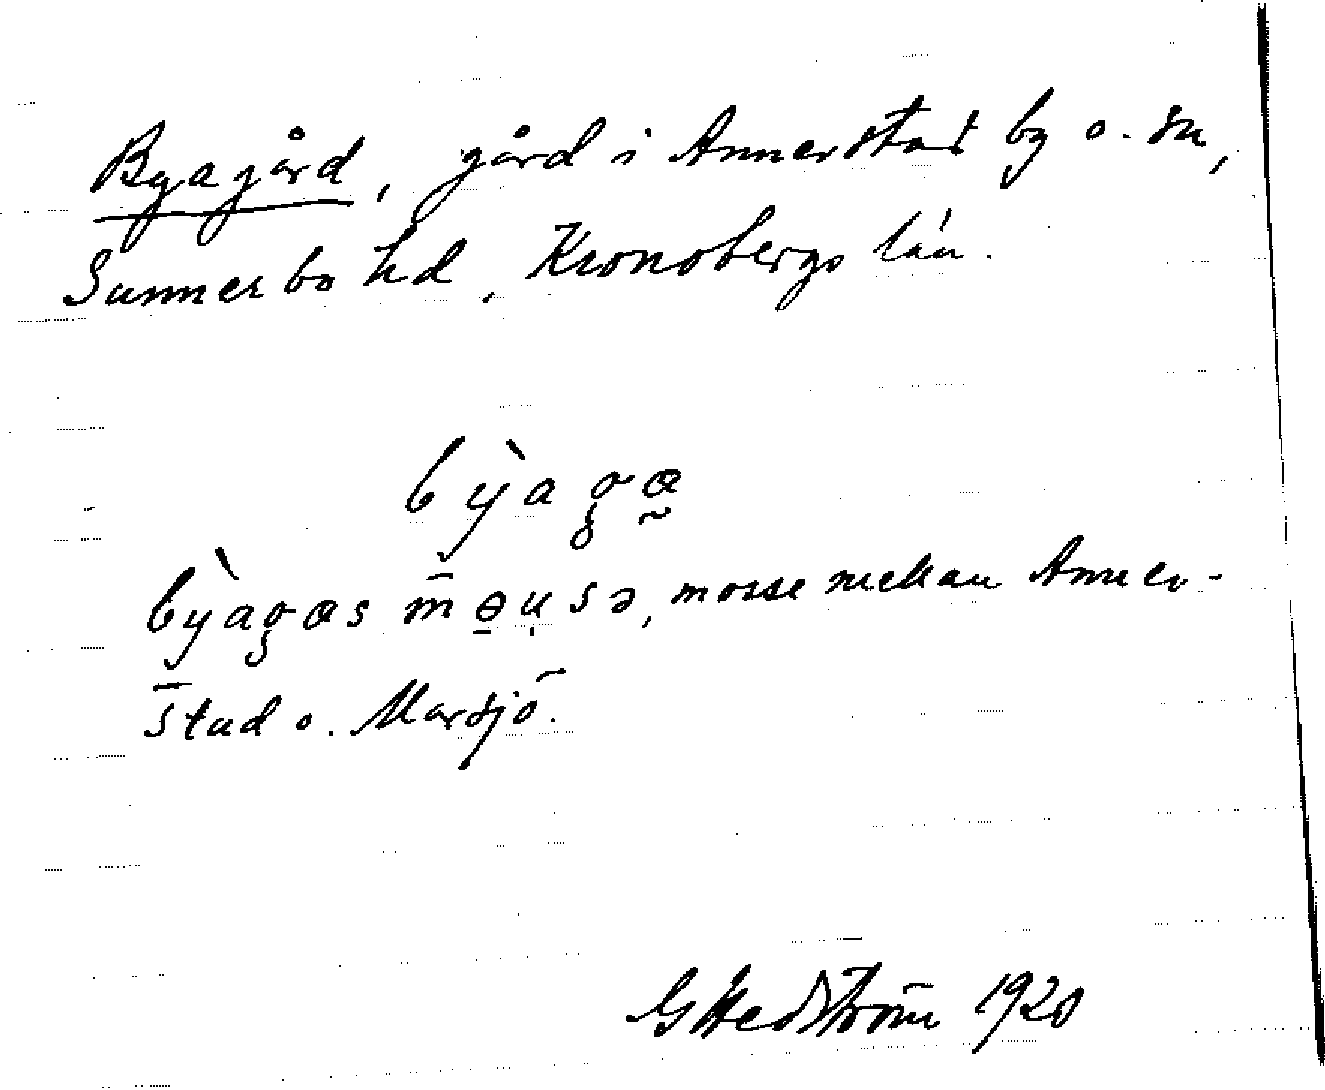 Byagård, gård i Annerstad by o. sn,
Sunnerbo hd, Kronobergs län.
bỳagæ̰
bỳagæs m̄ə̱u̩sə, mosse mellan Anner-
stad o. Marsjö.
G Hedström 1920